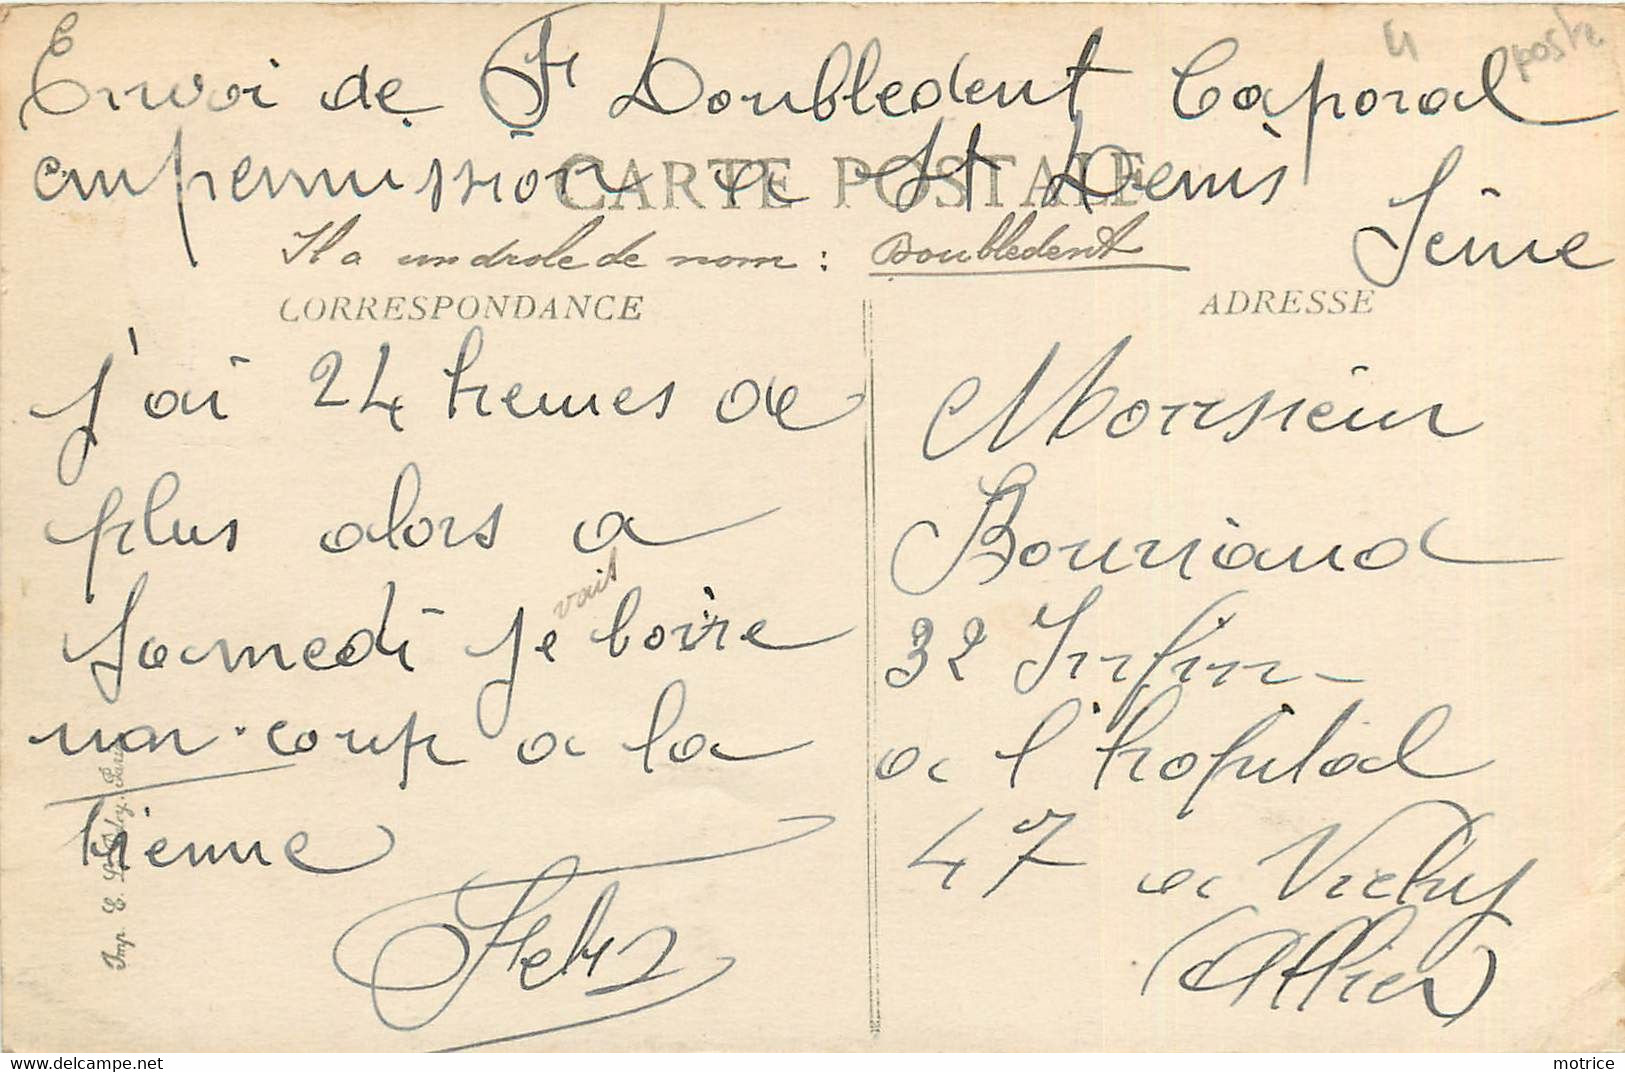 4 poste
Envoi de F Doubledent Caporal
en permission a St Denis
Seine
CARTE POSTALE
Il a un drole de nom : Doubledent
CORRESPONDANCE
j'ai 24 heures de
plus alors a
Samedi je vait boire
un coup a la
tienne
Felix
ADRESSE
Monsieur
Bourriaud
32 Infirr
a l'hopital
47 a Vichy
(Allier)
Imp. E. Le Deley, Paris
motrice